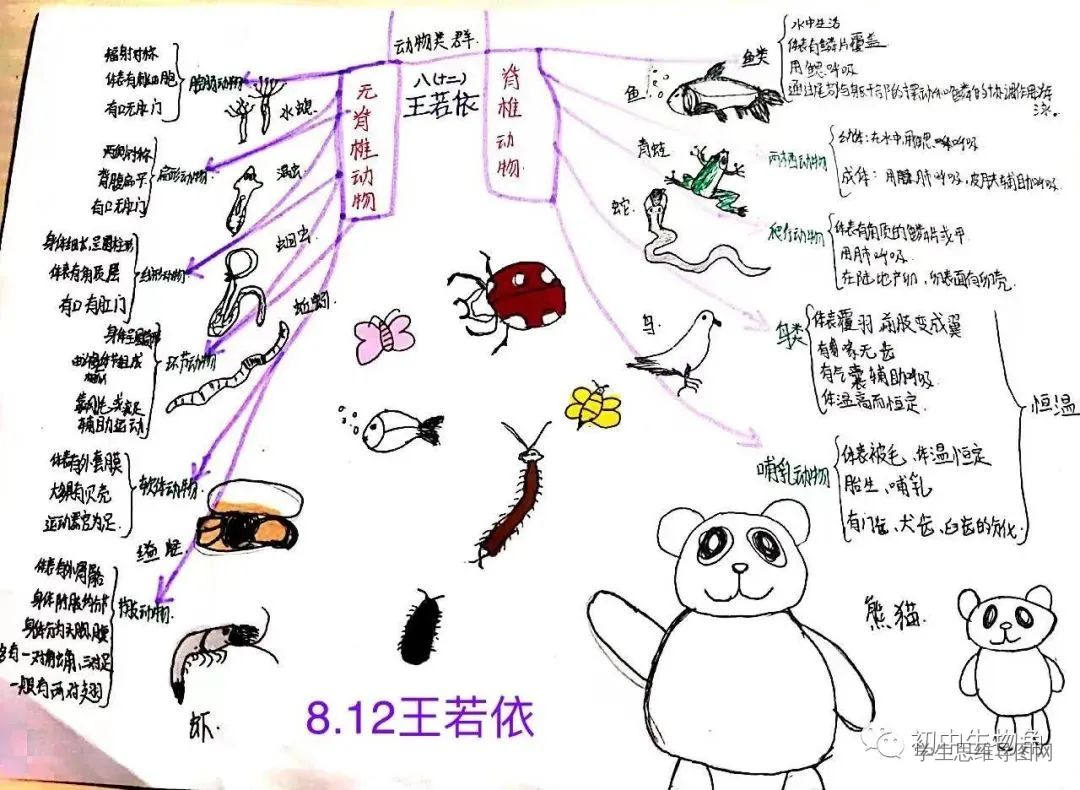 动物类群.
八(十二)
王若依
无脊椎动物
脊椎动物.
辐射对称
体表有刺细胞
有口无肛门
腔肠动物
水螅
两侧对称
背腹扁平
有口无肛门
扁形动物
涡虫
身体细长,呈圆柱形
体表有角质层
有口有肛门
线形动物
蛔虫
身体呈圆筒形
组成
环节动物
蚯蚓
刚毛或疣足
辅助运动
体表有外套膜
大多具有贝壳
运动器官为足.
软体动物
缢蛏.
体表有外骨骼
身体
身体分为头胸腹
一对触角,三对足
一般有两对翅
节肢动物
虾.
鱼
鱼类
水中生活
体表有鳞片覆盖
用鳃呼吸
通过尾部与躯干部的摆动和鳍的协调作用游泳。
青蛙
两栖动物
幼体:在水中用鳃呼吸
成体:用肺呼吸,皮肤辅助呼吸.
蛇
爬行动物
体表有角质的鳞片或甲
用肺呼吸.
在陆地产卵,卵表面有卵壳.
鸟
鸟类
体表覆羽 前肢变成翼
有喙无齿
有气囊辅助呼吸
体温高而恒定.
哺乳动物
体表被毛、体温恒定
胎生、哺乳
有门齿、犬齿、臼齿的分化
恒温
熊猫.
8.12王若依
初中生物角
学生思维导图网